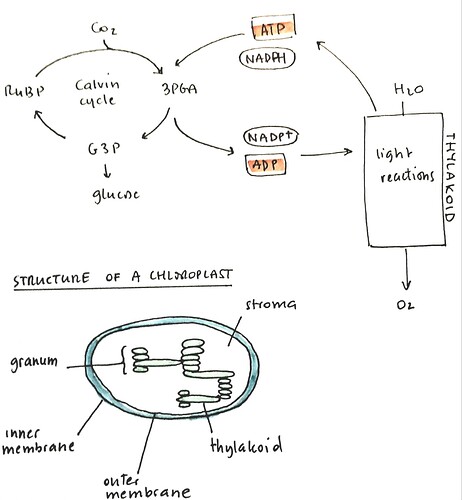 CO₂
ATP
NADPH
RuBP
Calvin
cycle
3PGA
H₂O
G3P
NADP+
ADP
light
reactions
THYLAKOID
glucose
O₂
STRUCTURE OF A CHLOROPLAST
stroma
granum
inner
membrane
thylakoid
outer
membrane